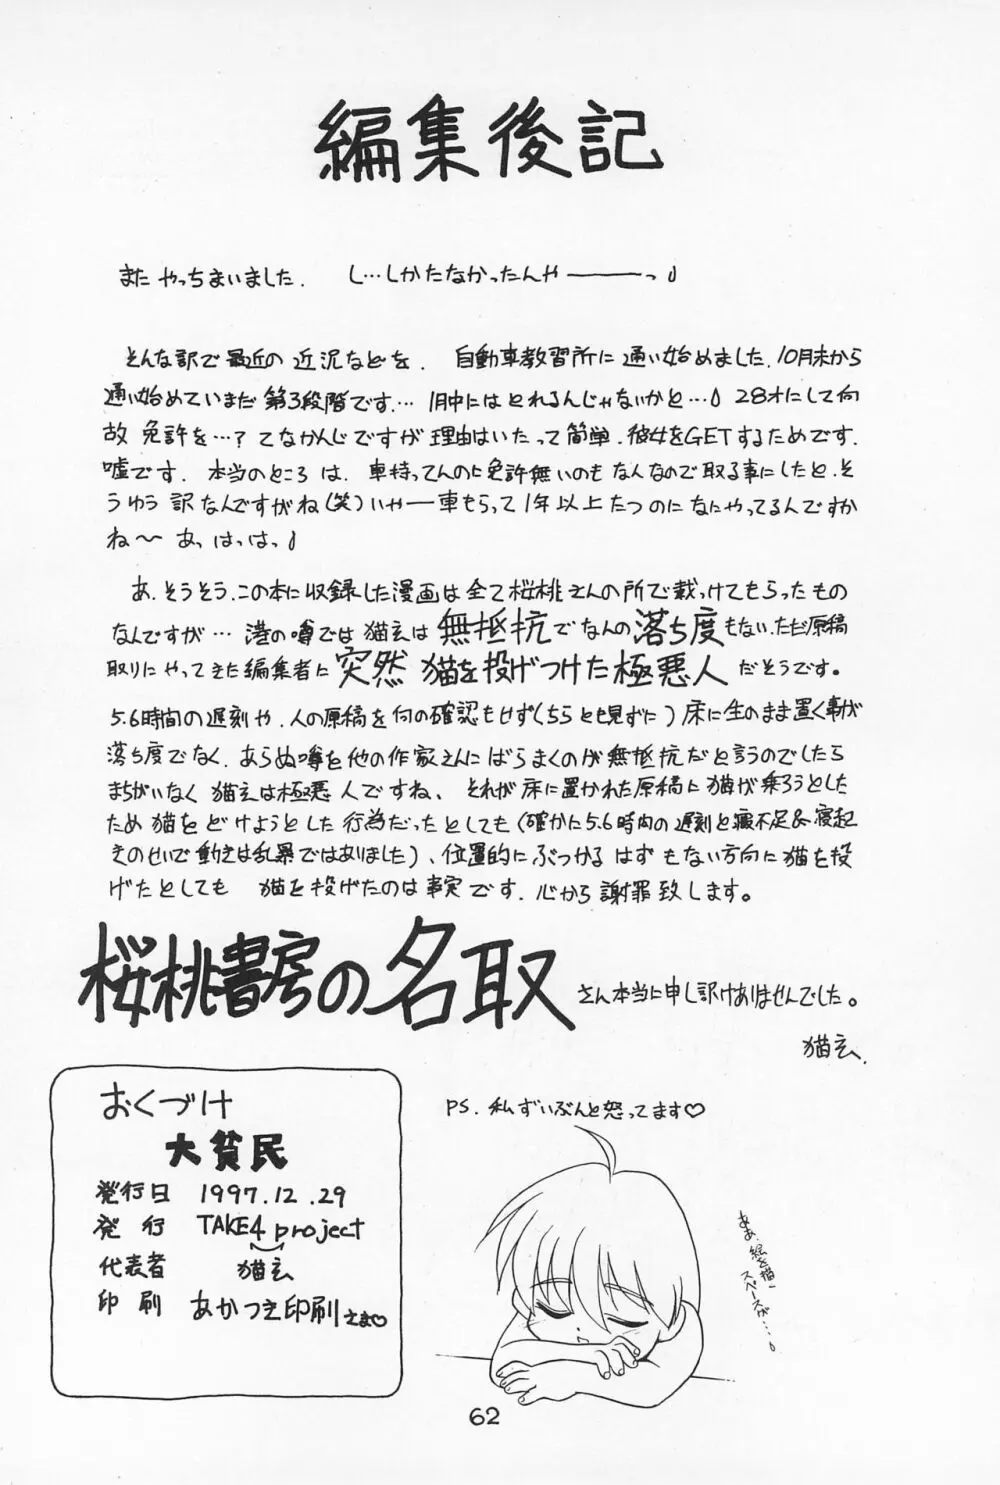 編集後記
またやっちまいました. し…しかたなかったんや―――っ♪
そんな訳で最近の近況などを. 自動車教習所に通い始めました.10月末から
通い始めていまだ第3段階です.… 1月中にはとれるんじゃないかと…♪ 28才にして何
故免許を…？てなかんじですが理由はいたって簡単.彼女をGETするためです.
嘘です. 本当のところは、車持ってんのに免許無いのもなんなので取る事にしたと.そ
うゆう訳なんですがね(笑)いやー車もらって1年以上たつのになにやってるんですか
ね〜 あっはっはっ♪
あ.そうそう.この本に収録した漫画は全て桜桃さんの所で載っけてもらったもの
なんですが… 港の噂では猫玄は無抵抗でなんの落ち度もない.ただ原稿
取りにやってきた編集者に突然猫を投げつけた極悪人だそうです。
5.6時間の遅刻や.人の原稿を何の確認もせず(ちらとも見ずに)床に生のまま置く事が
落ち度でなく.あらぬ噂を他の作家さんにばらまくのが無抵抗だと言うのでしたら
まちがいなく猫玄は極悪人ですね、それが床に置かれた原稿に猫が乗ろうとした
ため猫をどけようとした行為だったとしても(確かに5.6時間の遅刻と寝不足&寝起
きのせいで動きは乱暴ではありました)、位置的にぶつかるはずもない方向に猫を投
げたとしても 猫を投げたのは事実です.心から謝罪致します。
桜桃書房の名取さん本当に申し訳けありませんでした。
猫玄.
PS. 私ずいぶんと怒ってます♡
おくづけ
大貧民
発行日 1997.12.29
発行 TAKE4 project
代表者 猫玄
印刷 あかつき印刷さま♡
ああ.絵を描く
スペースが…♪
62